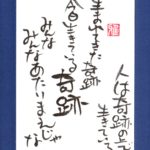 人は奇跡の上で
生きている
生まれてきた奇跡
今日生きている奇跡
みんな
みんなあたりまえじゃ
ない